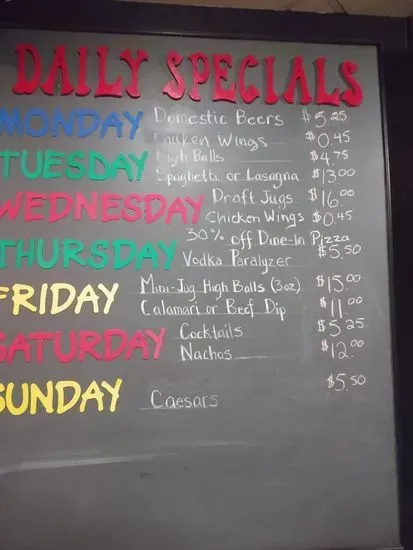 DAILY SPECIALS
MONDAY Domestic Beers $5.25
Chicken Wings $0.45
TUESDAY High Balls $4.75
Spaghetti or Lasagna $13.00
WEDNESDAY Draft Jugs $16.00
Chicken Wings $0.45
THURSDAY 30% off Dine-In Pizza
Vodka Paralyzer $5.50
FRIDAY Mini-Jug High Balls (3oz) $15.00
Calamari or Beef Dip $11.00
SATURDAY Cocktails $5.25
Nachos $12.00
SUNDAY Caesars $5.50